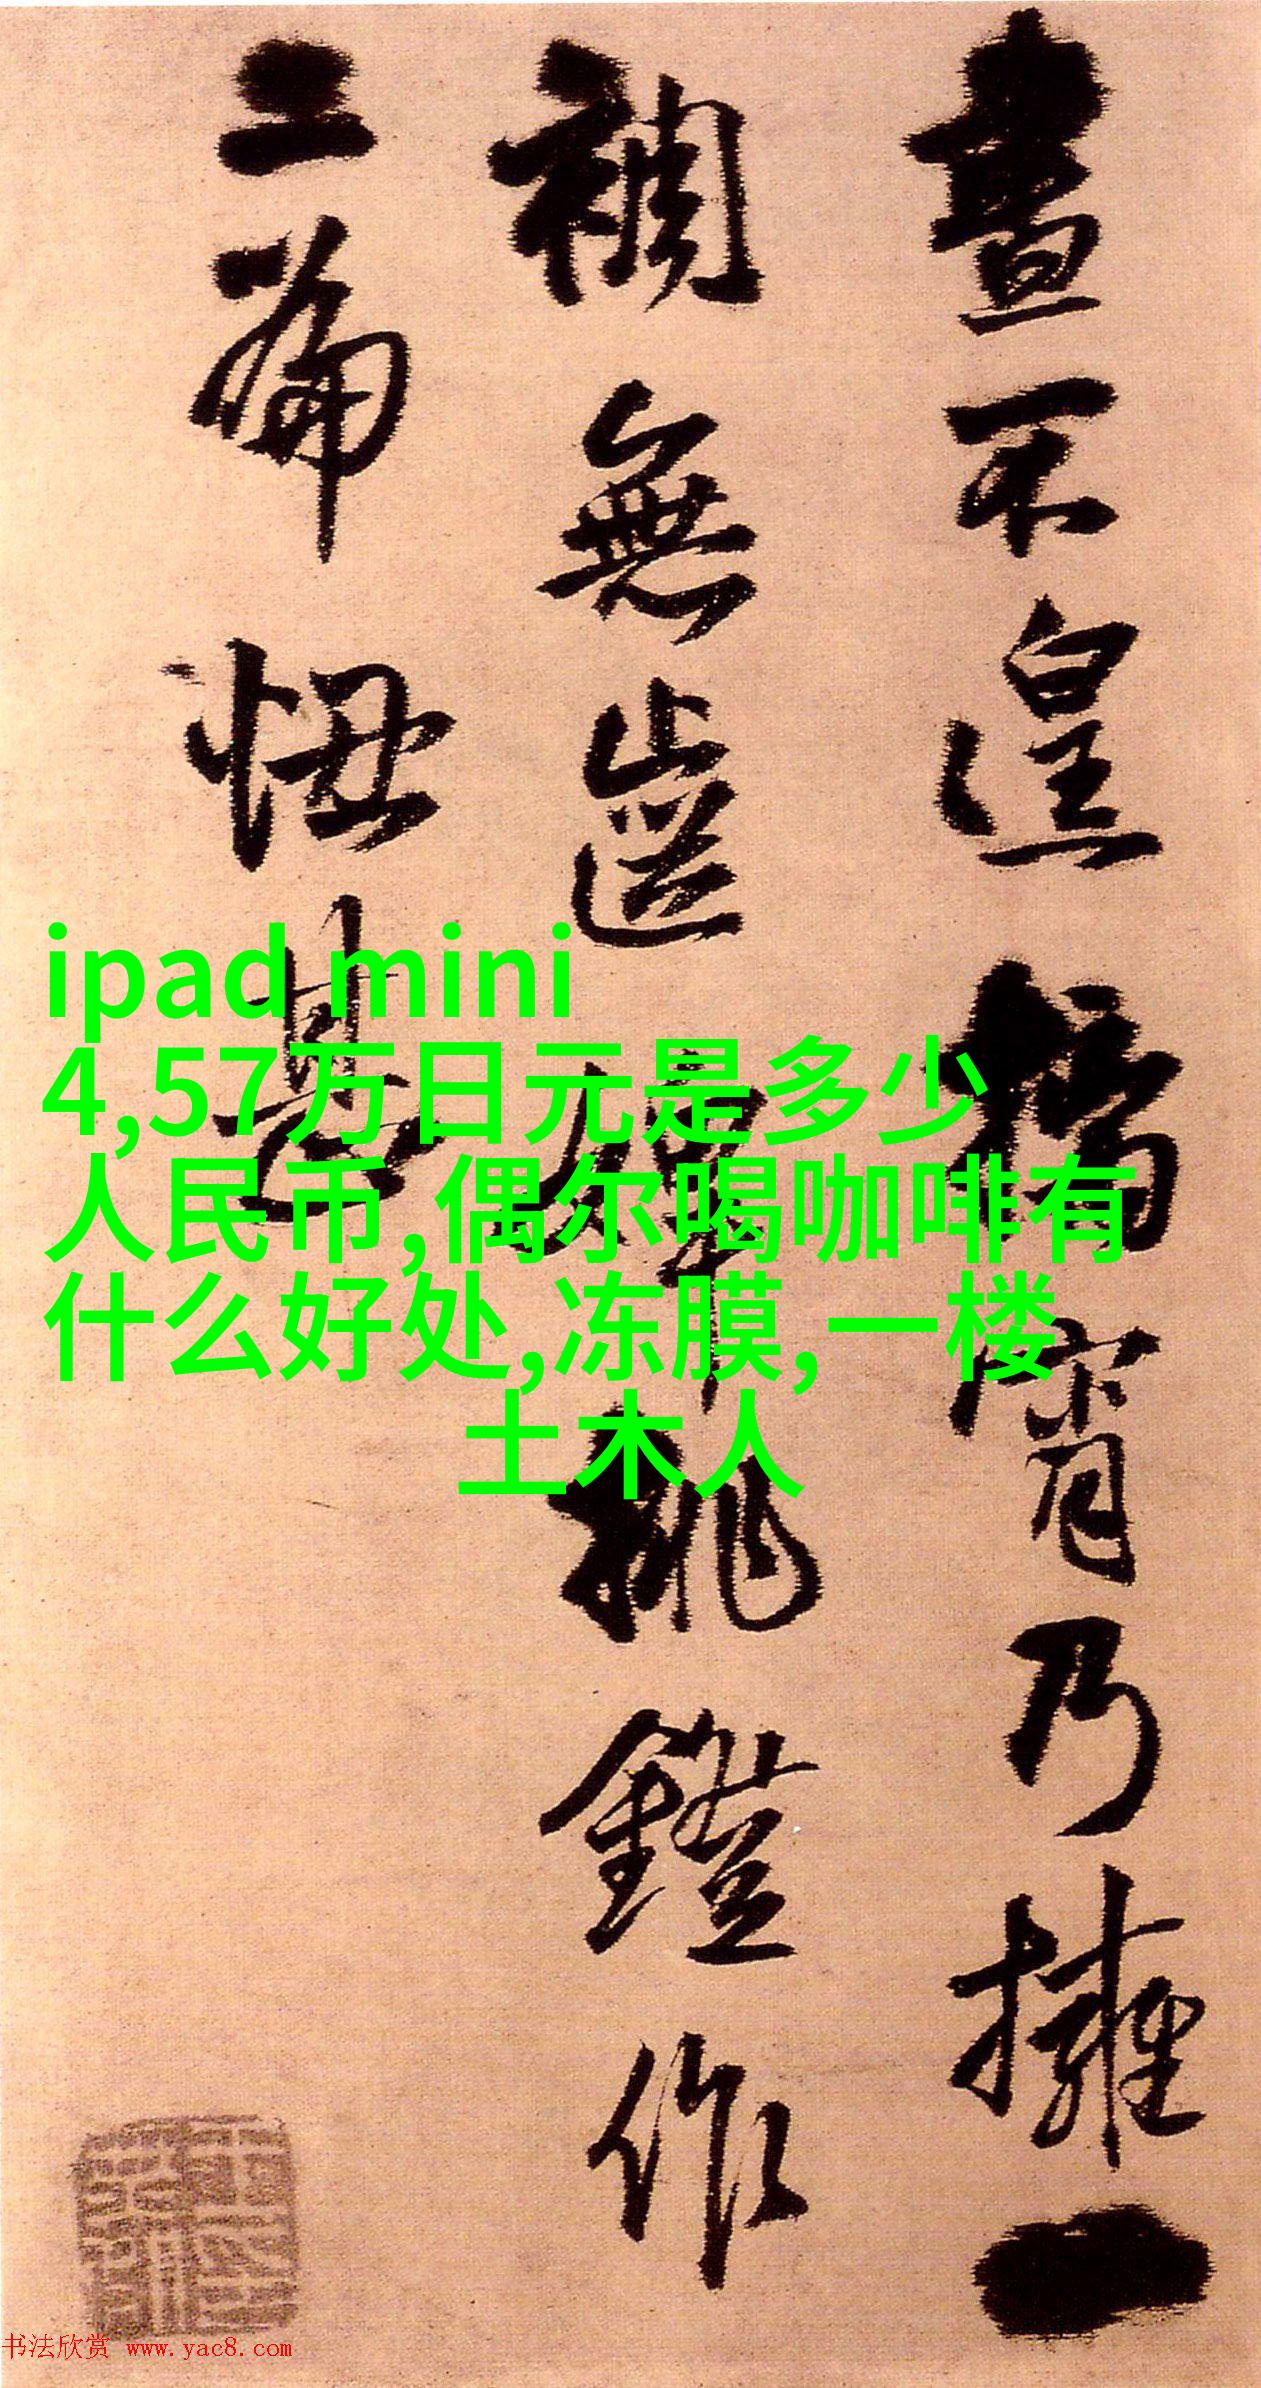 晝不遑搞宵乃擁一
裯無遑嬋挑鐙作
二篇忸甚
ipad mini
4,57万日元是多少
人民币,偶尔喝咖啡有
什么好处,冻膜, 一楼
土木人
书法欣赏 www.yac8.com